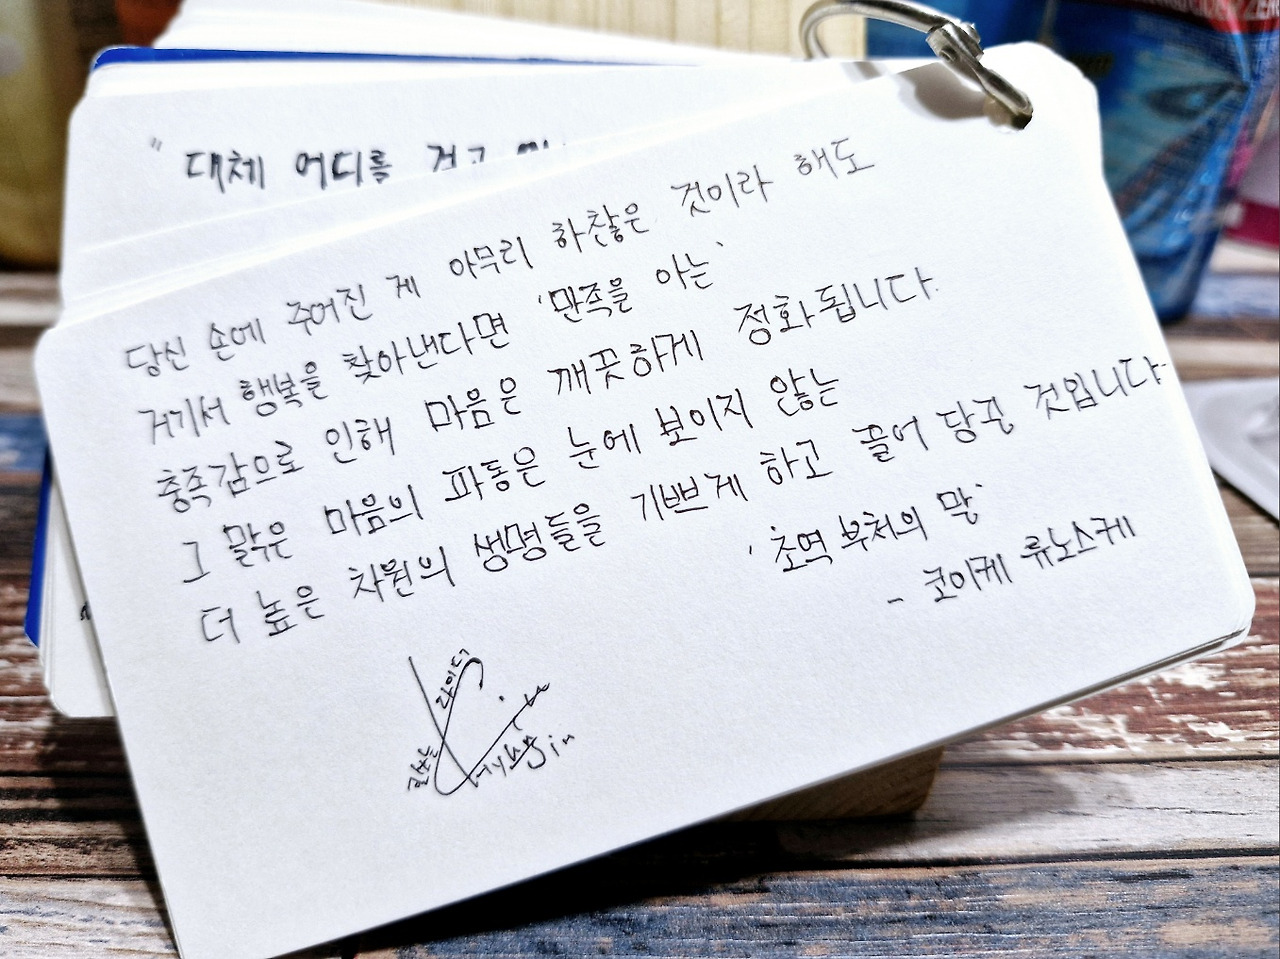 " 대체 어디를 걷고
당신 손에 주어진 게 아무리 하찮은 것이라 해도
거기서 행복을 찾아낸다면 '만족을 아는'
충족감으로 인해 마음은 깨끗하게 정화됩니다.
그 맑은 마음의 파동은 눈에 보이지 않는
더 높은 차원의 생명들을 기쁘게 하고 끌어 당긴 것입니다.
'초역 부처의 말'
- 코이케 류노스케
라이더